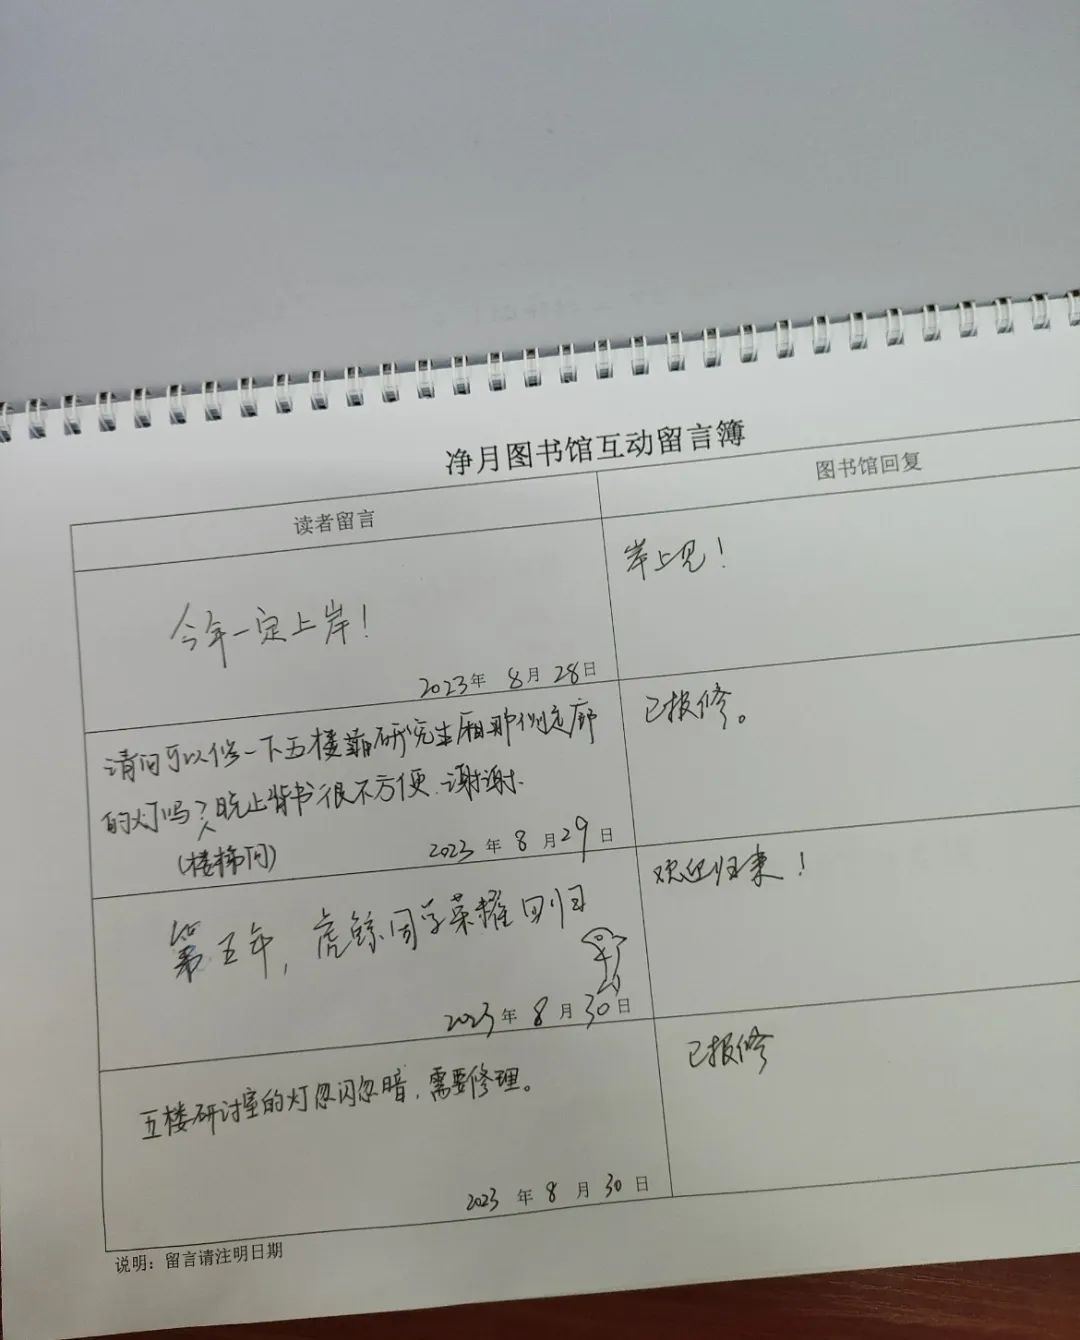 净月图书馆互动留言簿
读者留言
图书馆回复
今年一定上岸！
2023年 8月 28日
岸上见！
请问可以修一下五楼靠研究生厢那侧走廊
的灯吗？晚上背书很不方便.谢谢.
(楼梯间)
2023 年 8 月29 日
已报修。
第五年，虎鲸同学荣耀回归
2023年 8 月 30日
欢迎归来！
五楼研讨室的灯忽闪忽暗，需要修理。
2023 年 8 月 30 日
已报修
说明：留言请注明日期